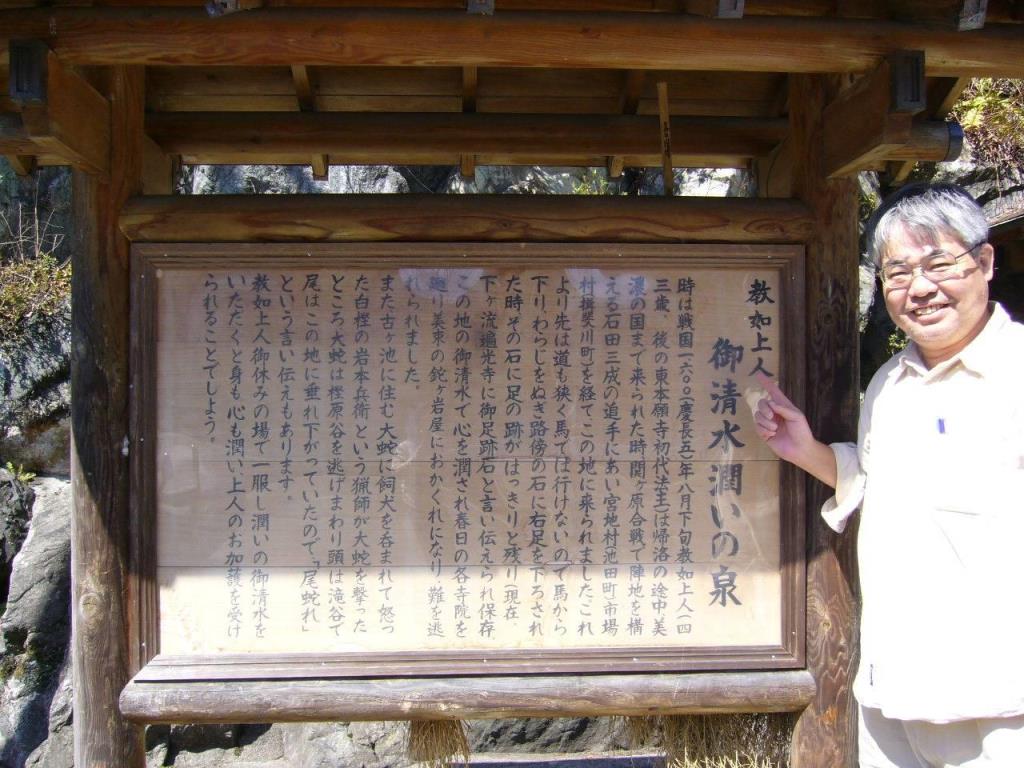 教如上人
御清水潤いの泉
時は戦国一六〇〇(慶長五)年八月下旬教如上人(四
三歳、後の東本願寺初代法主)は帰洛の途中、美
濃の国まで来られた時関ヶ原合戦で陣地を構
える石田三成の追手にあい宮地村池田町市場
村揖斐川町を経てこの地に来られましたこれ
より先は道も狭く馬では行けないので馬から
下り、わらじをぬぎ路傍の石に右足を下ろされ
た時その石に足の跡がはっきりと残り(現在
下ヶ流遍光寺に御足跡石と言い伝えられ保存)
この地の御清水で心を潤され春日の各寺院を
廻り美束の鉈ヶ岩屋におかくれになり、難を逃
れられました。
また古ヶ池に住む大蛇に飼犬を呑まれて怒っ
た白樫の岩本兵衛という猟師が大蛇を撃った
ところ大蛇は樫原谷を逃げまわり頭は滝谷で
尾はこの地に垂れ下がっていたので、「尾蛇れ」
という言い伝えもあります。
教如上人御休みの場で一服し潤いの御清水を
いただくと身も心も潤い上人のお加護を受け
られることでしょう。